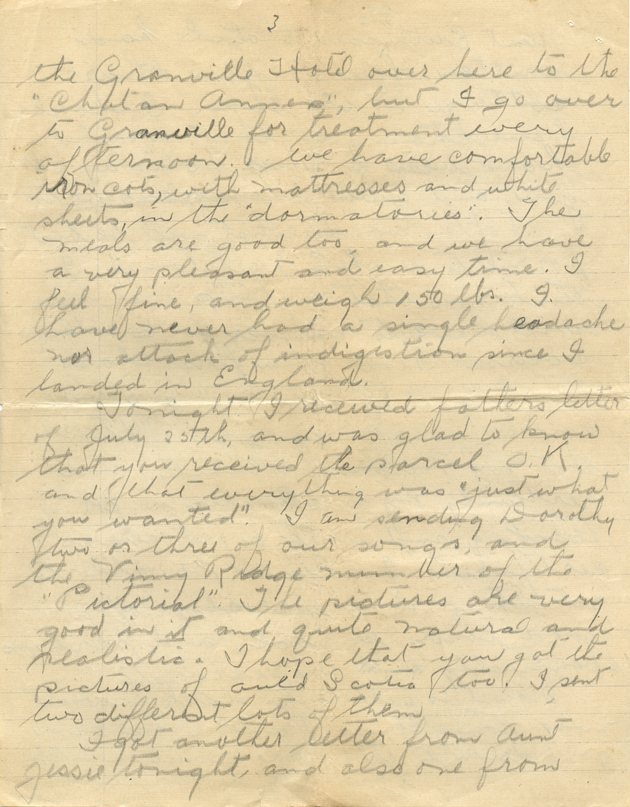 3
the Granville Hotel over here to the
"Chatan Annex", but I go over
to Granville for treatment every
afternoon. We have comfortable
iron cots, with mattresses and white
sheets, in the "dormatories". The
meals are good too, and we have
a very pleasant and easy time. I
feel fine, and weigh 150 lbs. I
have never had a single headache
nor attack of indigestion since I
landed in England.
Tonight I received fathers letter
of July 25th, and was glad to know
that you received the parcel O.K.
and that everything was "just what
you wanted". I am sending Dorothy
two or three of our songs, and
the Vimy Ridge number of the
"Pictorial". The pictures are very
good in it and quite natural and
realistic. I hope that you got the
pictures of auld Scotia too. I sent
two different lots of them
I got another letter from Aunt
Jessie tonight, and also one from